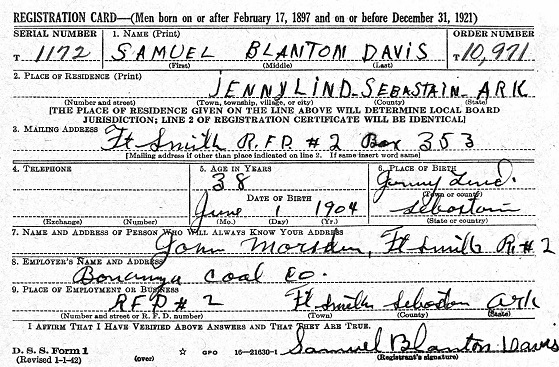 REGISTRATION CARD—(Men born on or after February 17, 1897 and on or before December 31, 1921)
SERIAL NUMBER 1. NAME (Print) ORDER NUMBER
T 1172 SAMUEL BLANTON DAVIS T 10,971
(First) (Middle) (Last)
2. PLACE OF RESIDENCE (Print)
JENNY LIND - SEBASTAIN - ARK
(Number and street) (Town, township, village, or city) (County) (State)
[THE PLACE OF RESIDENCE GIVEN ON THE LINE ABOVE WILL DETERMINE LOCAL BOARD
JURISDICTION; LINE 2 OF REGISTRATION CERTIFICATE WILL BE IDENTICAL]
3. MAILING ADDRESS
Ft Smith R.F.D. # 2 Box 353
[Mailing address if other than place indicated on line 2. If same insert word same]
4. TELEPHONE 5. AGE IN YEARS 6. PLACE OF BIRTH
38 Jenny Lind
DATE OF BIRTH (Town or county)
June 1 1904 Sebastain
(Exchange) (Number) (Mo.) (Day) (Yr.) (State or country)
7. NAME AND ADDRESS OF PERSON WHO WILL ALWAYS KNOW YOUR ADDRESS
John Morsden, Ft Smith R. # 2
8. EMPLOYER'S NAME AND ADDRESS
Bonanza Coal Co.
9. PLACE OF EMPLOYMENT OR BUSINESS
RFD # 2 Ft Smith Sebastain Ark
(Number and street or R. F. D. number) (Town) (County) (State)
I AFFIRM THAT I HAVE VERIFIED ABOVE ANSWERS AND THAT THEY ARE TRUE.
Samuel Blanton Davis
D. S. S. Form 1 (Revised 1-1-42) (over) ☆ GPO 16—21630-1 (Registrant's signature)